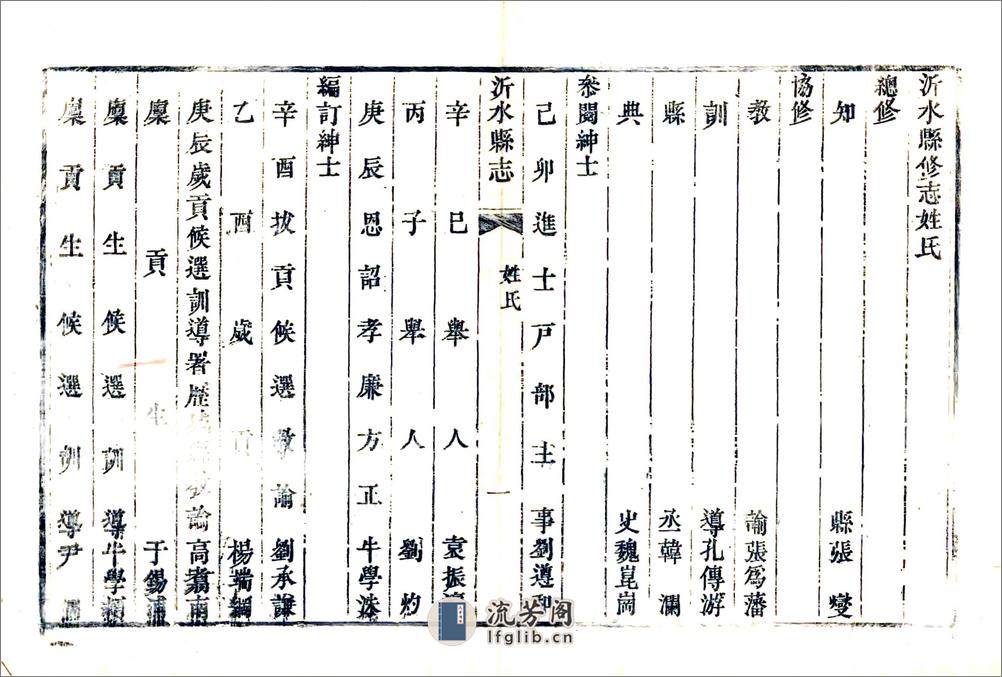 沂水縣修志姓氏
總修
知縣張燮
協修
教諭張爲藩
訓導孔傳游
縣丞韓瀾
典史魏崑崗
叅閱紳士
己卯進士戸部主事劉遵和
沂水縣志
姓氏
一
辛巳舉人袁振瀛
丙子舉人劉灼
庚辰恩詔孝廉方正牛學洙
編訂紳士
辛酉拔貢候選教諭劉承謙
乙酉歲貢楊端綱
庚辰歲貢候選訓導署歷教諭高翥南
廩貢生于錫浦
廩貢生候選訓導牛學
廩貢生候選訓導尹
流芳阁
lfglib.cn